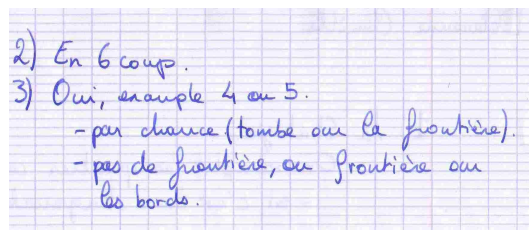 2) En 6 coup.
3) Oui, exemple 4 ou 5.
- par chance (tombe sur la frontière).
- pas de frontière, ou frontière sur
les bords.